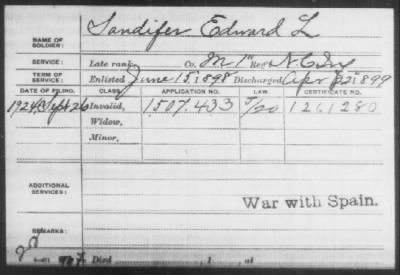 NAME OF SOLDIER: Sandifer Edward L
SERVICE: Late rank, Co. M 1" Reg't N.C. Inf
TERM OF SERVICE: Enlisted June 15, 1898 Discharged Apr 22" 1899
DATE OF FILING. CLASS. APPLICATION NO. LAW. CERTIFICATE NO.
1924, Sept 26 Invalid, 1,507,433 5/20 1261280
Widow,
Minor,
ADDITIONAL SERVICES:
War with Spain.
REMARKS:
Died , 1 , at